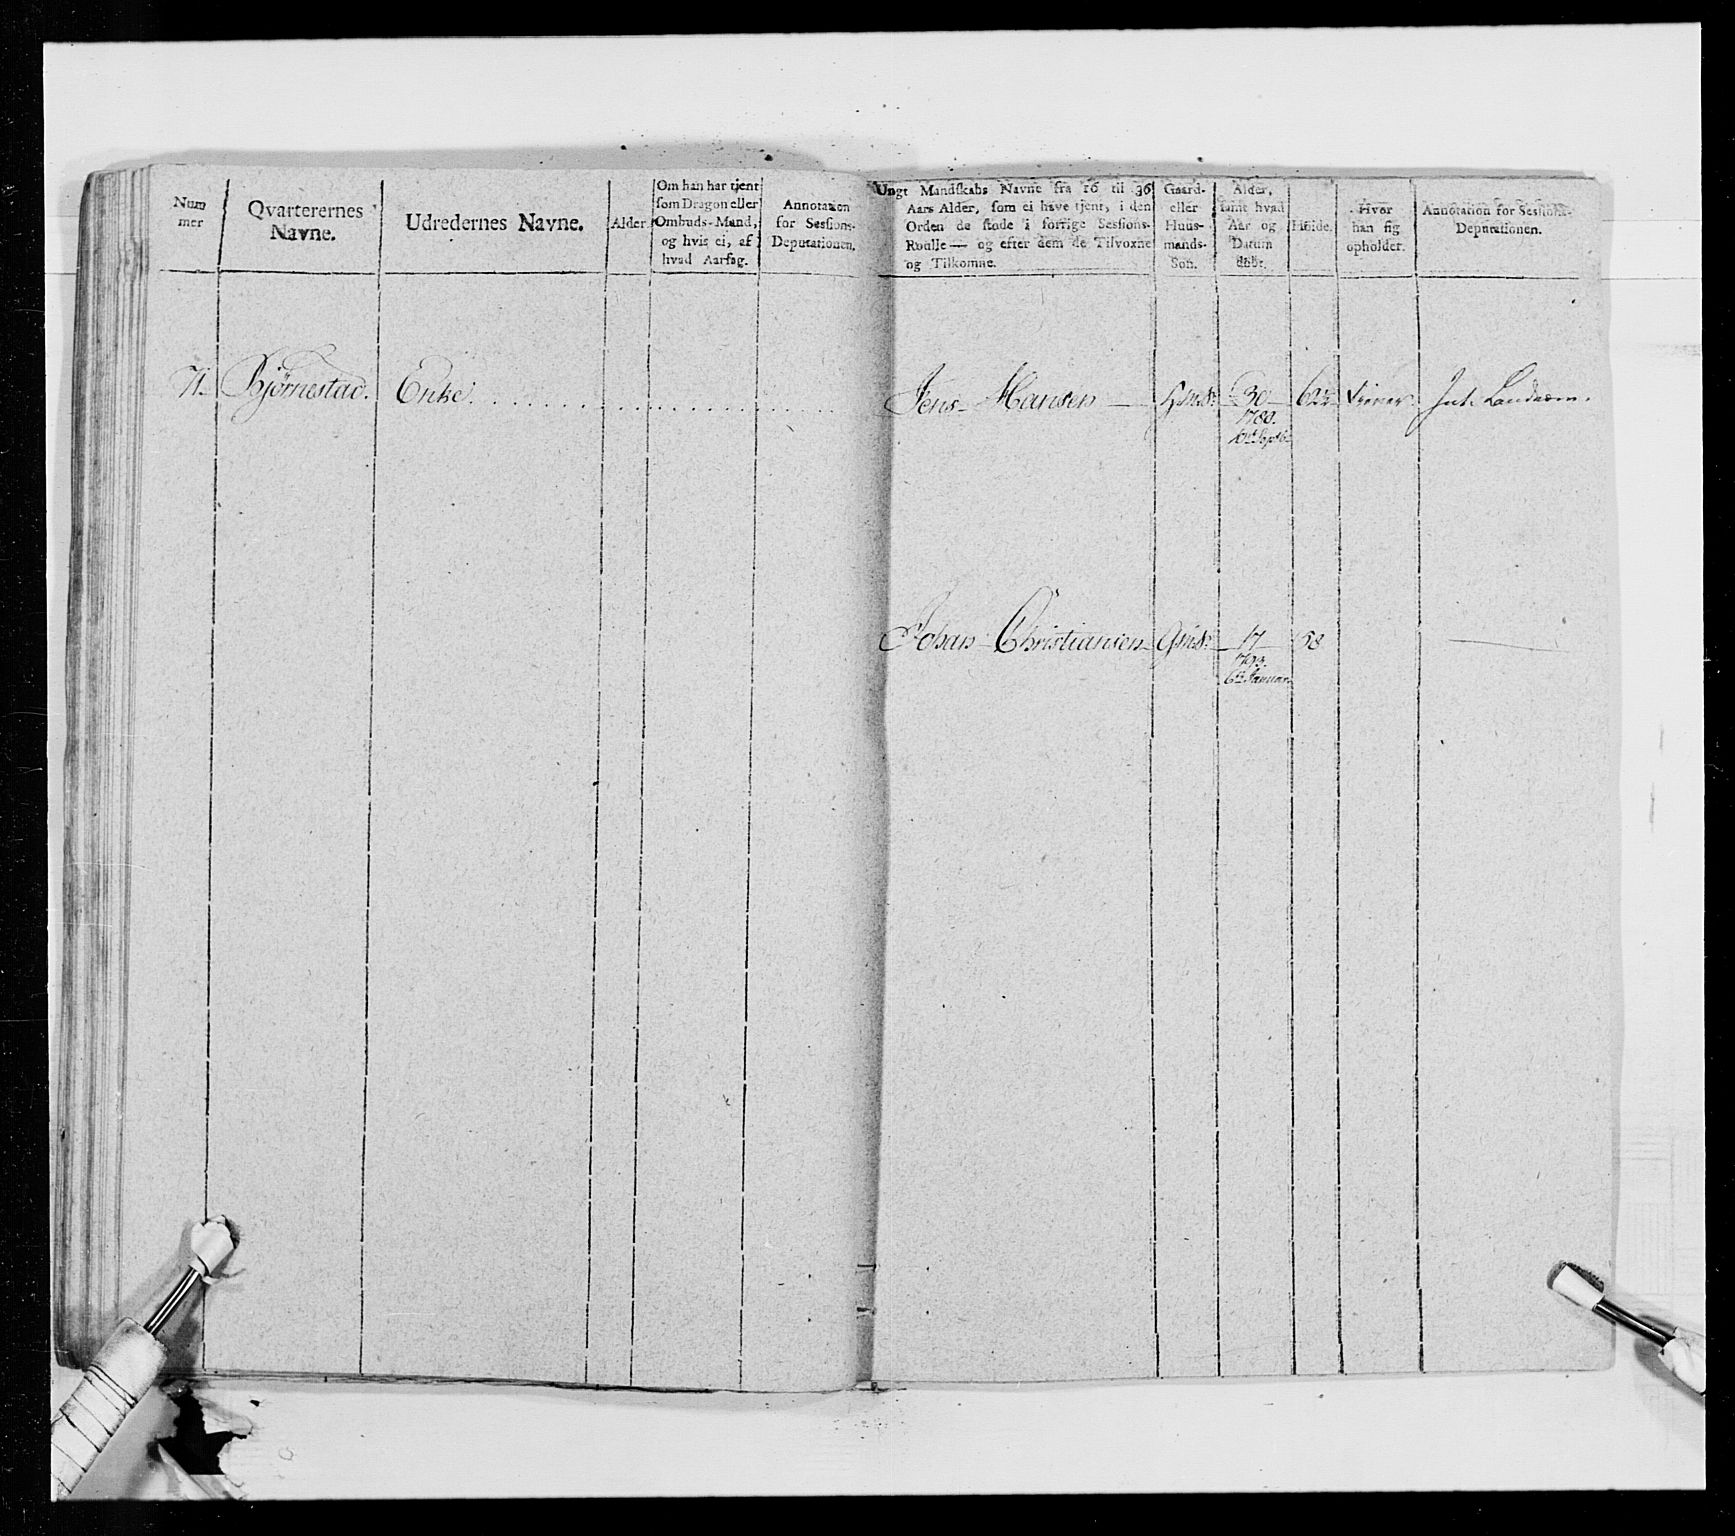 Num
mer
Qvarterernes
Navne.
Udredernes Navne.
Alder.
Om han har tjent
som Dragon eller
Ombuds-Mand,
og hvis ei, af
hvad Aarsag.
Annotation
for Sessions-
Deputationen.
Ungt Mandskabs Navne fra 16 til 36
Aars Alder, som ei have tjent, i den
Orden de stode i forrige Sessions-
Roulle — og efter dem de Tilvoxne
og Tilkomne.
Gaard-
eller
Huus-
mands-
Søn.
Alder,
samt hvad
Aar og
Datum
født.
Høide.
Hvor
han sig
opholder.
Annotation for Sessions-
Deputationen.
71. Bjørnestad. Enke. Jens Hansen 30 Int. Landværn.
1780.
Johan Christiansen GmS: 17 58
1793.
6te Januar.